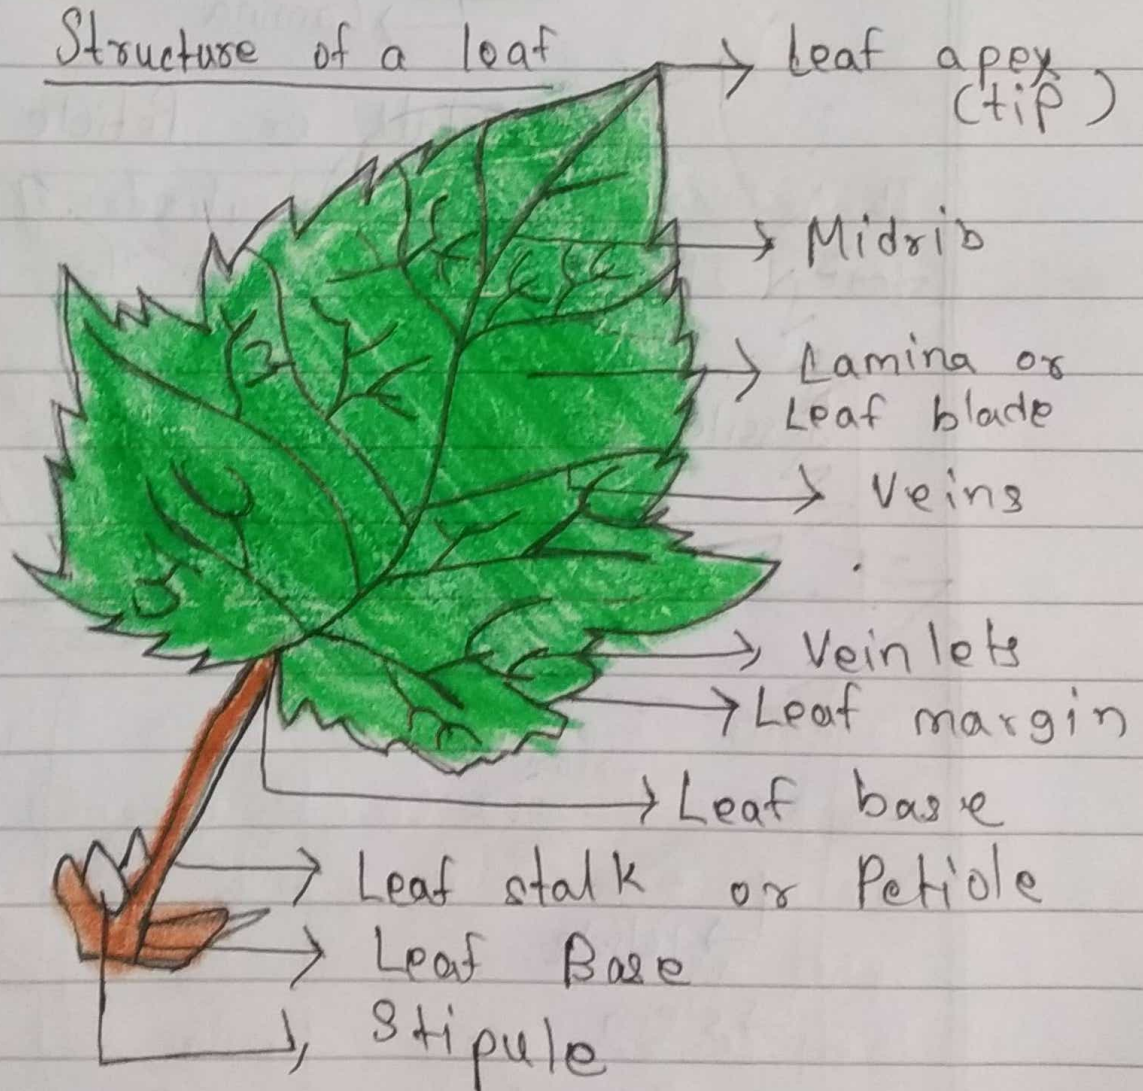 Structure of a leaf
Leaf apex
(tip)
Midrib
Lamina or
Leaf blade
Veins
Veinlets
Leaf margin
Leaf base
Leaf stalk or Petiole
Leaf Base
Stipule